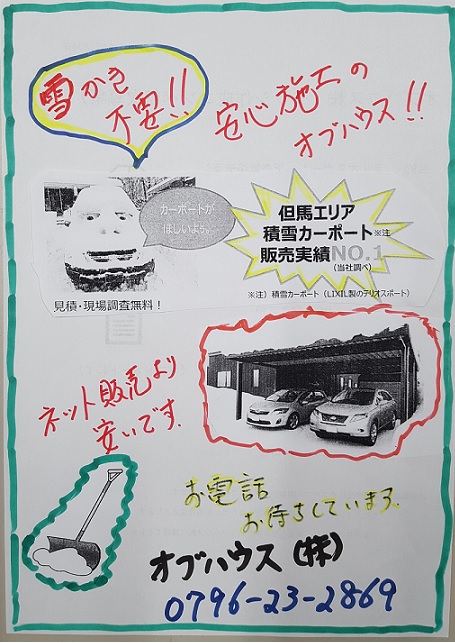 雪かき
不要!!
安心施工の
オブハウス!!
カーポートが
ほしいよぅ。
但馬エリア
積雪カーポート※注
販売実績NO.1
(当社調べ)
見積・現場調査無料!
※注)積雪カーポート(LIXIL製のテリオスポート)
ネット販売より
安いです。
お電話
お待ちしています。
オブハウス(株)
0796-23-2869